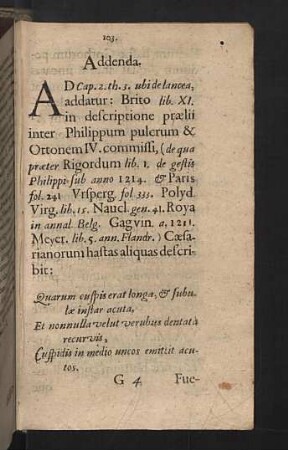 103.
Addenda.
AD Cap. 2. th. 3. ubi de lancea,
addatur: Brito lib. XI.
in descriptione prælii
inter Philippum pulcrum &
Ortonem IV. commissi, (de qua
præter Rigordum lib. 1. de gestis
Philippi sub anno 1214. & Paris
fol. 241 Vrsperg. fol 333. Polyd.
Virg. lib. 15. Naucl. gen. 41. Roya
in annal. Belg. Gagvin. a. 1211.
Meyer. lib. 5. ann. Flandr.) Cæsa-
rianorum hastas aliquas descri-
bit:
Quarum cuspis erat longa, & subu-
læ instar acuta,
Et nonnulla velut verubus dentata
recurvis,
Cuspidis in medio uncos emittit acu-
tos.
G 4. Fue-